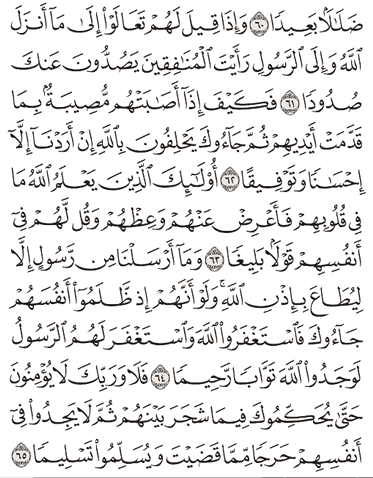 ضَلَٰلًۢا بَعِيدٗا ٦٠ وَإِذَا قِيلَ لَهُمۡ تَعَالَوۡاْ إِلَىٰ مَآ أَنزَلَ
ٱللَّهُ وَإِلَى ٱلرَّسُولِ رَأَيۡتَ ٱلۡمُنَٰفِقِينَ يَصُدُّونَ عَنكَ
صُدُودٗا ٦١ فَكَيۡفَ إِذَآ أَصَٰبَتۡهُم مُّصِيبَةُۢ بِمَا
قَدَّمَتۡ أَيۡدِيهِمۡ ثُمَّ جَآءُوكَ يَحۡلِفُونَ بِٱللَّهِ إِنۡ أَرَدۡنَآ إِلَّآ
إِحۡسَٰنٗا وَتَوۡفِيقًا ٦٢ أُوْلَٰٓئِكَ ٱلَّذِينَ يَعۡلَمُ ٱللَّهُ مَا
فِي قُلُوبِهِمۡ فَأَعۡرِضۡ عَنۡهُمۡ وَعِظۡهُمۡ وَقُل لَّهُمۡ فِيٓ
أَنفُسِهِمۡ قَوۡلَۢا بَلِيغٗا ٦٣ وَمَآ أَرۡسَلۡنَا مِن رَّسُولٍ إِلَّا
لِيُطَاعَ بِإِذۡنِ ٱللَّهِۚ وَلَوۡ أَنَّهُمۡ إِذ ظَّلَمُوٓاْ أَنفُسَهُمۡ
جَآءُوكَ فَٱسۡتَغۡفَرُواْ ٱللَّهَ وَٱسۡتَغۡفَرَ لَهُمُ ٱلرَّسُولُ
لَوَجَدُواْ ٱللَّهَ تَوَّابٗا رَّحِيمٗا ٦٤ فَلَا وَرَبِّكَ لَا يُؤۡمِنُونَ
حَتَّىٰ يُحَكِّمُوكَ فِيمَا شَجَرَ بَيۡنَهُمۡ ثُمَّ لَا يَجِدُواْ فِيٓ
أَنفُسِهِمۡ حَرَجٗا مِّمَّا قَضَيۡتَ وَيُسَلِّمُواْ تَسۡلِيمٗا ٦٥